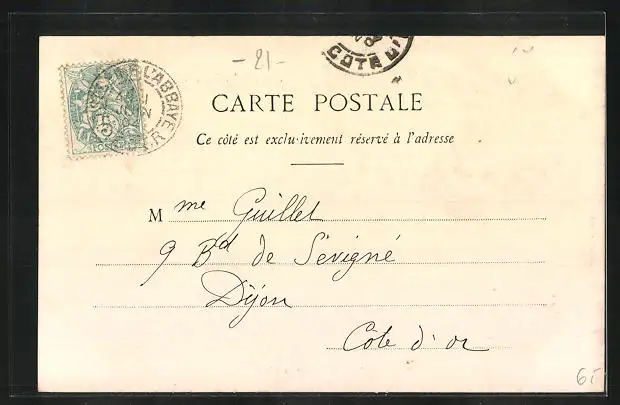 -21-
CÔTE D'
L'ABBAYE
CARTE POSTALE
Ce côté est exclusivement réservé à l'adresse
Mme Guillet
9 Bd de Sévigné
Dijon
Côte d'or